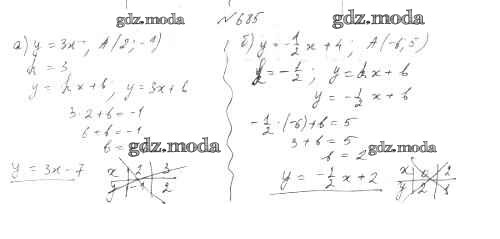 gdz.moda
№685
gdz.moda
а) y = 3x - , A(2; -1)
k = 3
y = kx + b; y = 3x + b
3·2 + b = -1
6 + b = -1
b =
gdz.moda
y = 3x - 7
x 2 3
y -1 2
б) y = -1/2 x + 4; A(-6; 5)
k = -1/2; y = kx + b
y = -1/2 x + b
-1/2·(-6) + b = 5
3 + b = 5
b = 2
gdz.moda
y = -1/2 x + 2
x 0 2
y 2